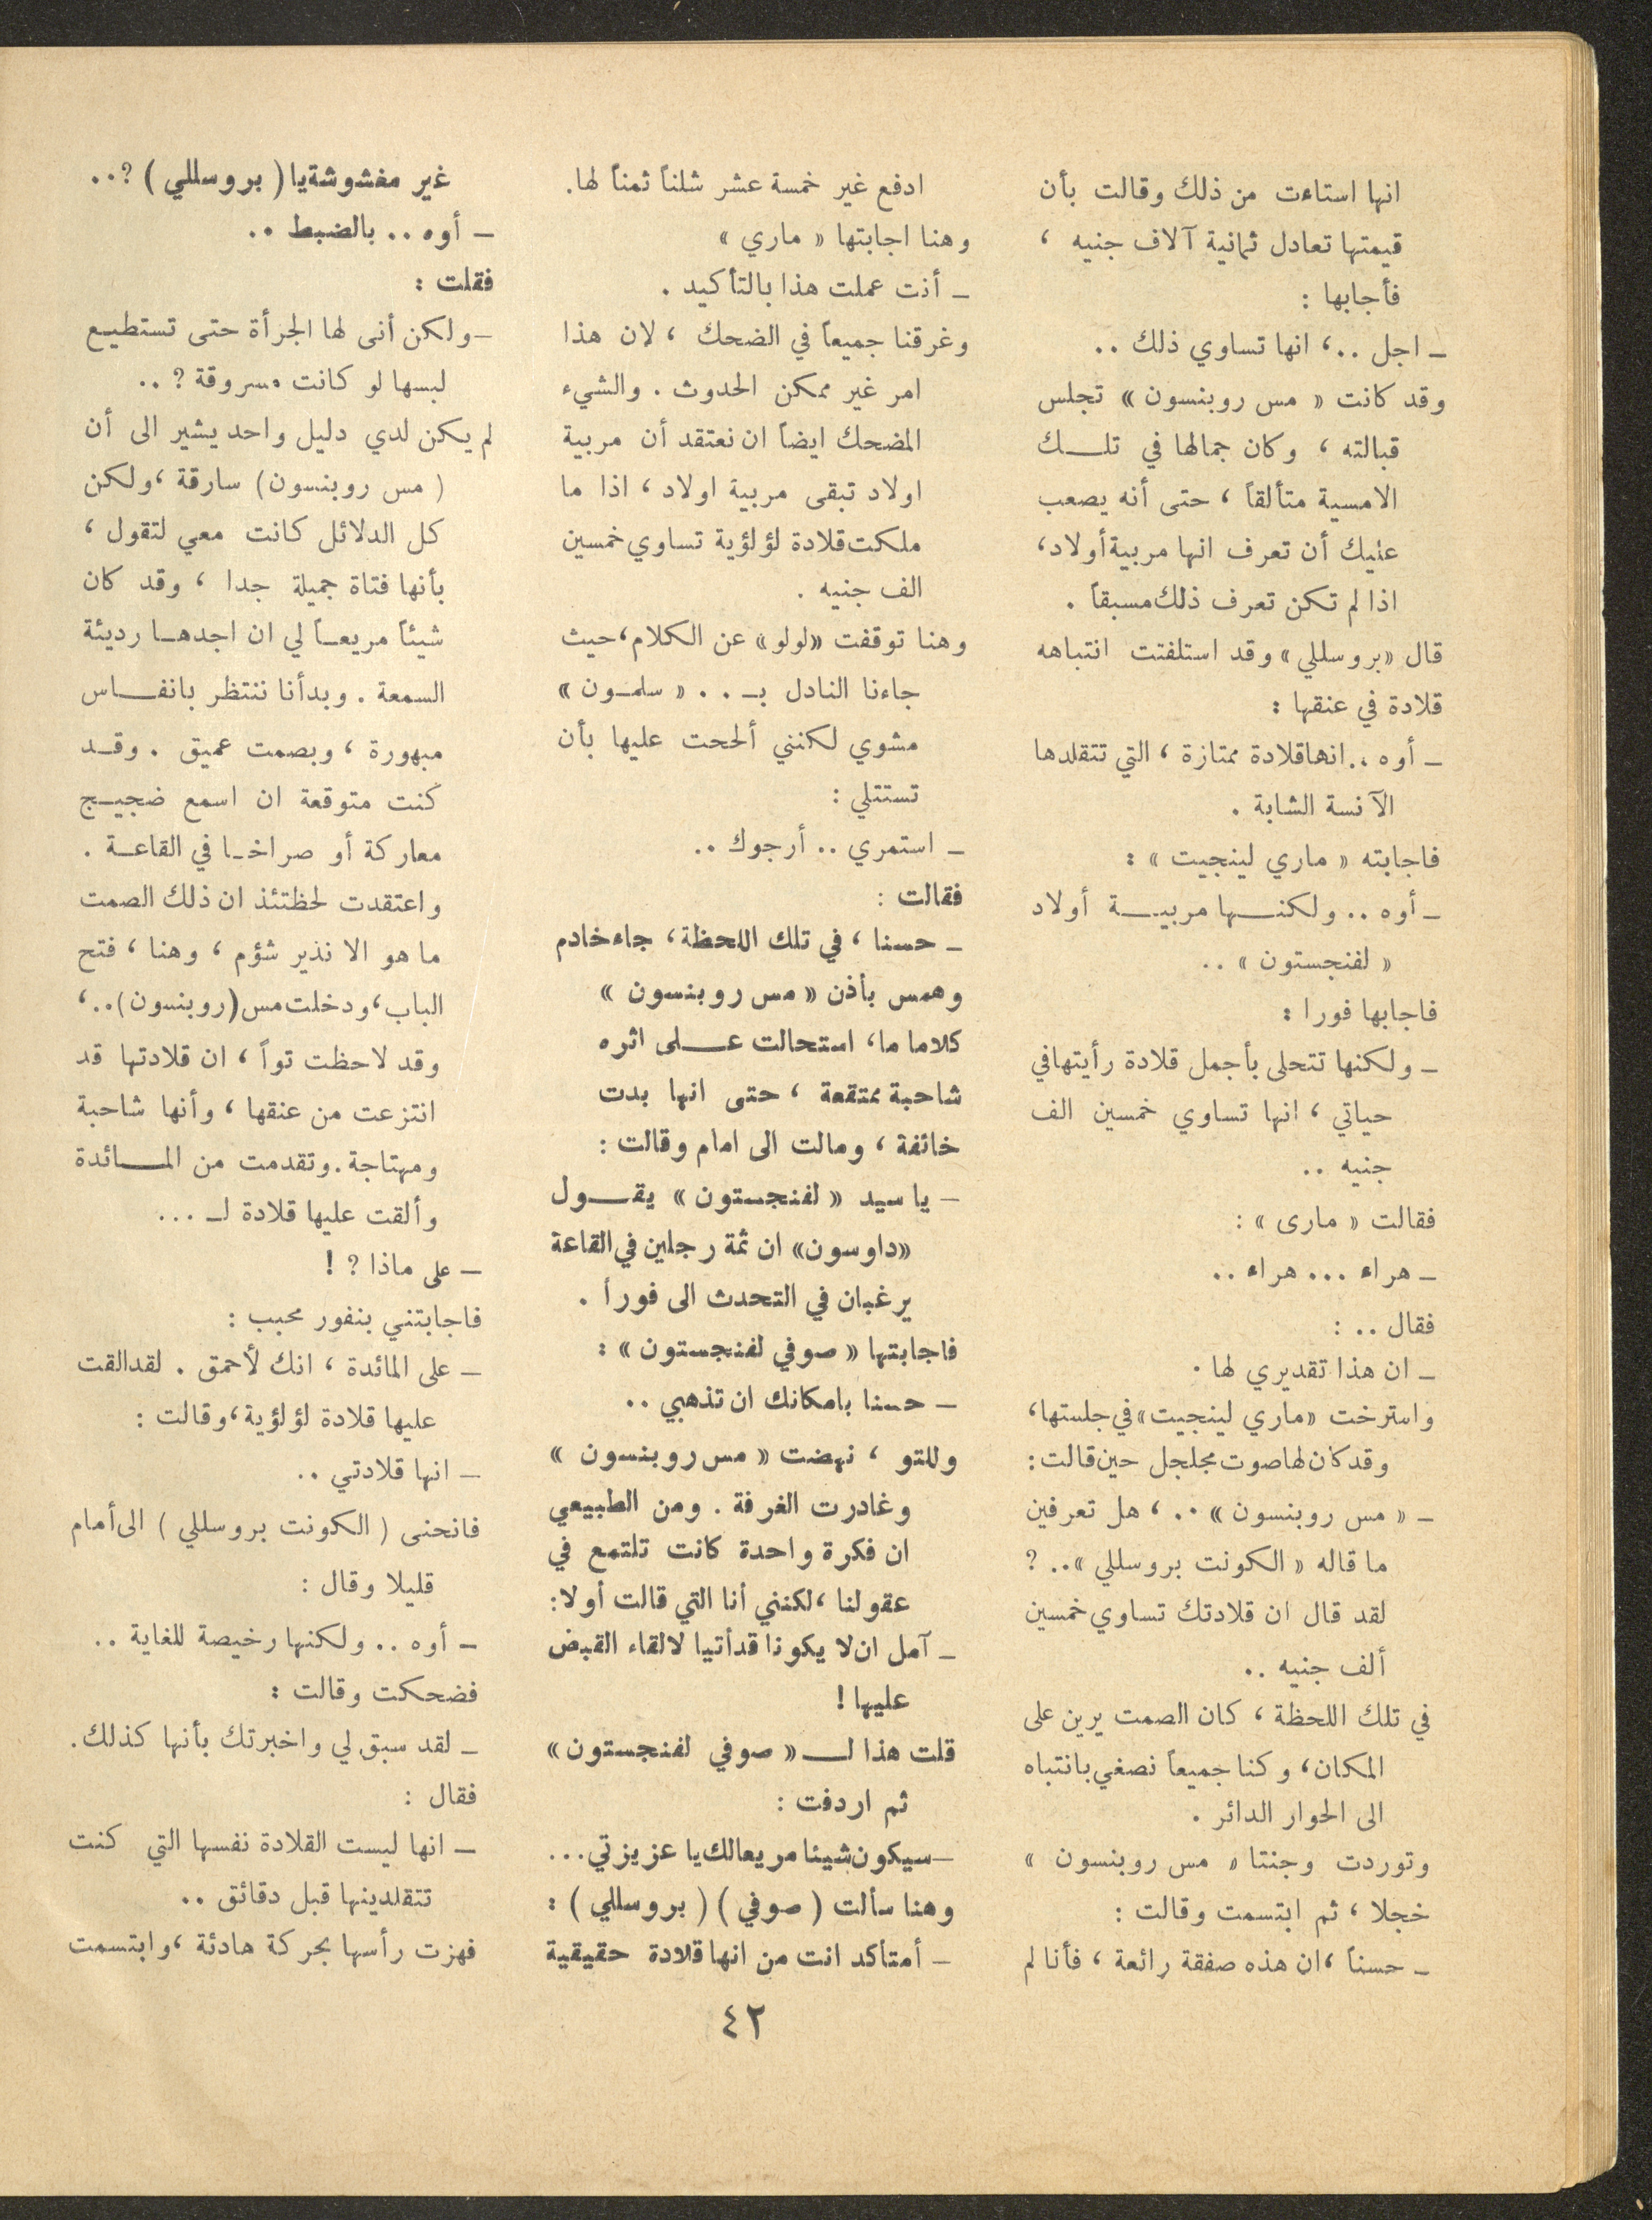 انها استاءت من ذلك وقالت بأن
قيمتها تعادل ثمانية آلاف جنيه ،
فأجابها :
ـ اجل ..، انها تساوي ذلك ..
وقد كانت « مس روبنسون » تجلس
قبالته ، وكان جمالها في تلـــك
الامسية متألقاً ، حتى أنه يصعب
عليك أن تعرف انها مربية أولاد،
اذا لم تكن تعرف ذلك مسبقاً .
قال «بروسللي» وقد استلفتت انتباهه
قلادة في عنقها :
ـ أوه .. انها قلادة ممتازة ، التي تتقلدها
الآنسة الشابة .
فاجابته « ماري لينجيت » :
ـ أوه .. ولكنـــها مربيـــة أولاد
« لفنجستون » ..
فاجابها فورا :
ـ ولكنها تتحلى بأجمل قلادة رأيتها في
حياتي ، انها تساوي خمسين الف
جنيه ..
فقالت « مارى » :
ـ هراء ... هراء ..
فقال .. :
ـ ان هذا تقديري لها .
واسترخت «ماري لينجيت» في جلستها،
وقد كان لها صوت مجلجل حين قالت :
ـ « مس روبنسون » .. ، هل تعرفين
ما قاله « الكونت بروسللي » .. ؟
لقد قال ان قلادتك تساوي خمسين
ألف جنيه ..
في تلك اللحظة ، كان الصمت يرين على
المكان، وكنا جميعاً نصغي بانتباه
الى الحوار الدائر .
وتوردت وجنتا « مس روبنسون »
خجلا ، ثم ابتسمت وقالت :
ـ حسناً ،ان هذه صفقة رائعة ، فأنا لم
ادفع غير خمسة عشر شلناً ثمناً لها.
وهنا اجابتها « ماري »
ـ أنت عملت هذا بالتأكيد .
وغرقنا جميعاً في الضحك ، لان هذا
امر غير ممكن الحدوث . والشيء
المضحك ايضاً ان نعتقد أن مربية
اولاد تبقى مربية اولاد ، اذا ما
ملكت قلادة لؤلؤية تساوي خمسين
الف جنيه .
وهنا توقفت «لولو» عن الكلام، حيث
جاءنا النادل بـ .. « سلمـون »
مشوي لكنني ألححت عليها بأن
تستتلي :
ـ استمري .. أرجوك ..
فقالت :
ـ حسنا ، في تلك اللحظة ، جاء خادم
وهمس بأذن « مس روبنسون »
كلاما ما ، استحالت عـــلى اثره
شاحبة ممتقعة ، حتى انها بدت
خائفة ، ومالت الى امام وقالت :
ـ يا سيد « لفنجستون » يقـــول
«داوسون» ان ثمة رجلين في القاعة
يرغبان في التحدث الى فوراً .
فاجابتها « صوفي لفنجستون » :
ـ حسنا بامكانك ان تذهبي ..
وللتو ، نهضت « مس روبنسون »
وغادرت الغرفة . ومن الطبيعي
ان فكرة واحدة كانت تلتمع في
عقولنا ،لكنني أنا التي قالت أولا :
ـ آمل ان لا يكونا قد أتيا لالقاء القبض
عليها !
قلت هذا لــ « صوفي لفنجستون »
ثم اردفت :
ـ سيكون شيئا مريعا لك يا عزيزتي ...
وهنا سألت ( صوفي ) ( بروسللي ) :
ـ أمتأكد انت من انها قلادة حقيقية
غير مغشوشة يا ( بروسللي ) ؟..
ـ أوه .. بالضبط ..
فقلت :
ـ ولكن أنى لها الجرأة حتى تستطيـع
لبسها لو كانت مسروقة ؟ ..
لم يكن لدي دليل واحد يشير الى أن
( مس روبنسون) سارقة ،ولكن
كل الدلائل كانت معي لتقول ،
بأنها فتاة جميلة جدا ، وقد كان
شيئاً مريعـاً لي ان اجدهـا رديئة
السمعة . وبدأنا ننتظر بانفــاس
مبهورة ، وبصمت عميق . وقـد
كنت متوقعة ان اسمع ضجيـج
معاركة أو صراخـا في القاعـة .
واعتقدت لحظتئذ ان ذلك الصمت
ما هو الا نذير شؤم ، وهنا ، فتح
الباب، ودخلت مس (روبنسون) ..،
وقد لاحظت تواً ، ان قلادتها قد
انتزعت من عنقها ، وأنها شاحبة
ومهتاجة . وتقدمت من المـــائدة
وألقت عليها قلادة لـ ...
ـ على ماذا ؟ !
فاجابتني بنفور محبب :
ـ على المائدة ، انك لأحمق . لقد القت
عليها قلادة لؤلؤية، وقالت :
ـ انها قلادتي ..
فانحنى ( الكونت بروسللي ) الى أمام
قليلا وقال :
ـ أوه .. ولكنها رخيصة للغاية ..
فضحكت وقالت :
ـ لقد سبق لي واخبرتك بأنها كذلك.
فقال :
ـ انها ليست القلادة نفسها التي كنت
تتقلدينها قبل دقائق ..
فهزت رأسها بحركة هادئة ،وابتسمت
٤٢